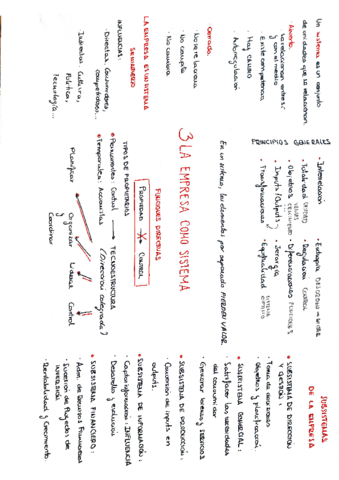 Un sistema es un conjunto
de unidades que se relacionan
Abierto
Se relacionan entre sí
y con el medio
Existe competencia
· Hay cambio
Autorregulación
Cerrado
No se relaciona
· No compite
· No cambia
LA EMPRESA ES UN SISTEMA
SEMIABIERTO
INFLUENCIAS:
· Directas: Consumidores,
competidores...
· Indirectas: Cultura,
Política,
Tecnología...
PRINCIPIOS GENERALES
· Interrelación
· Totalidad
· Objetivos
· Inputs/Outputs
· Transformaciones
· Entropía
· Regulación CONTROL
· Diferenciaciones FUNCIONES
· Sinergia
· Equifinalidad
En un sistema, los elementos por separado PIERDEN VALOR.
3 LA EMPRESA COMO SISTEMA
FUNCIONES DIRECTIVAS
PROPIEDAD CONTROL
TIPOS DE PROPIETARIOS
• Permanentes: Control → TECNOESTRUCTURA
• Temporales: Accionistas (Dirección categoría)
Planificar Organizar Liderar Control
y
Coordinar
SUBSISTEMAS
DE LA EMPRESA
• SUBSISTEMA DE DIRECCIÓN
Y GESTIÓN:
· Toma de decisiones
· Objetivos y planificación
• SUBSISTEMA COMERCIAL:
· Satisfacer las necesidades
del consumidor
· Generar bienes y servicios
• SUBSISTEMA DE PRODUCCIÓN:
· Conversión de inputs en
outputs.
• SUBSISTEMA DE INFORMACIÓN:
· Captar información: INFLUENCIA
· Desarrollo y evolución
• SUBSISTEMA FINANCIERO:
· Adm. de Recursos Financieros
· Selección de Proyectos de
INVERSIÓN
· Rentabilidad y Crecimiento